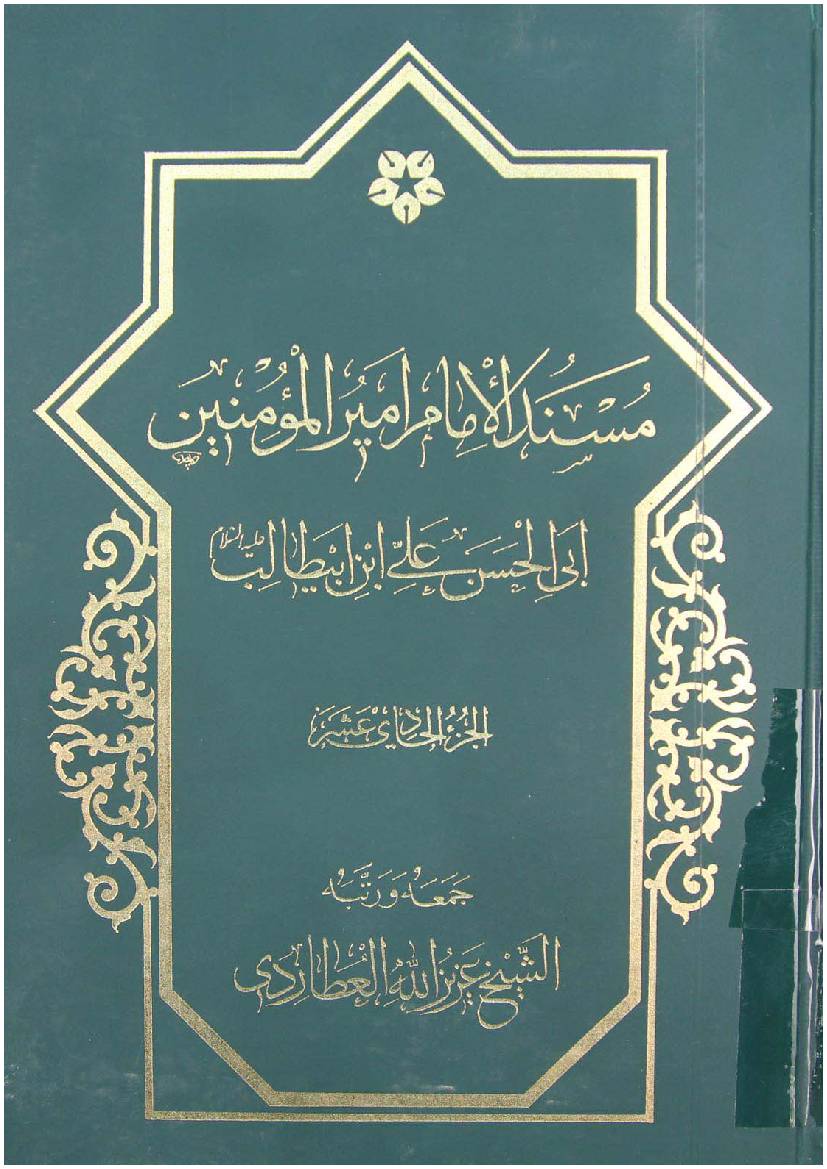 مُسْنَدُ الْإِمَامِ اَمِيرُ الْمُؤْمِنِينَ
اَبِي الْحَسَنِ عَلِيِّ ابْنِ ابيطَالِبٍ عليه السلام
الجُزءُ الحَادِي عَشَرَ
جَمَعَهُ وَرَتَّبَهُ
الشَّيْخُ عَزِيزُ اللهِ الْعُطَارِدِي